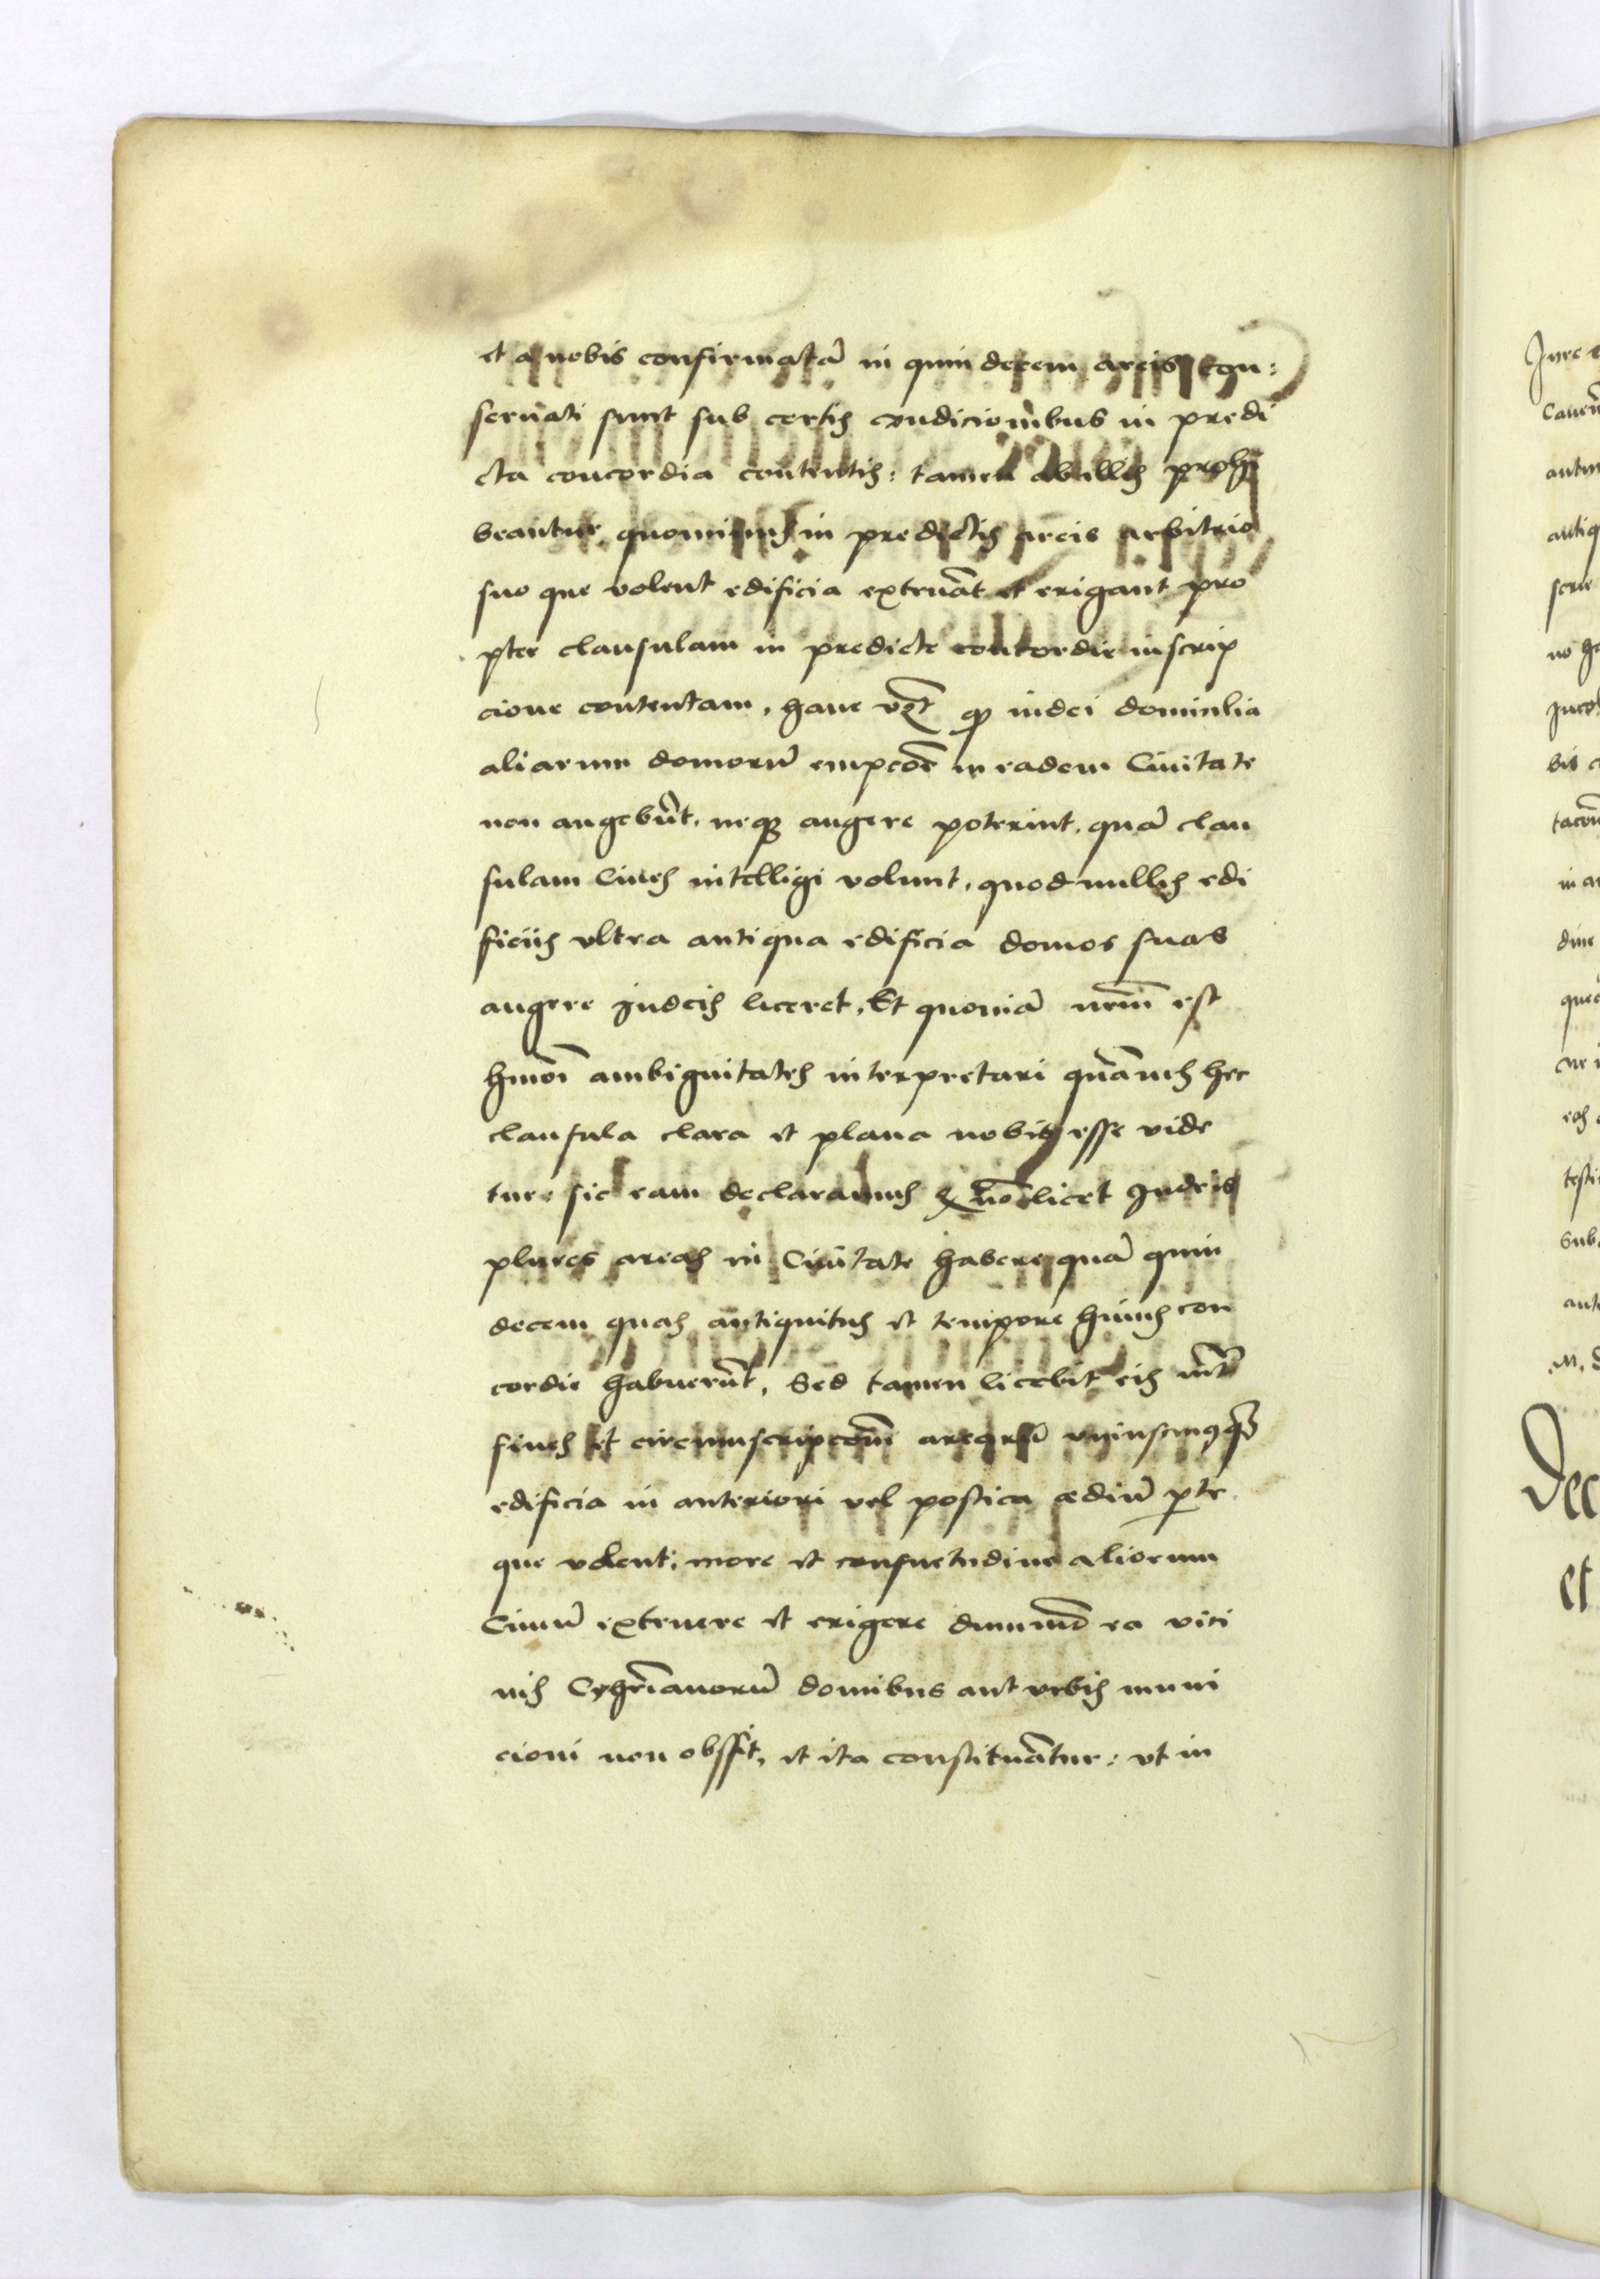 et a nobis confirmatā in quindecem areis con:
seruati sunt sub certis condicionibus in predi
cta concordia contentis: tamen ab illis prohi
beantur quominus in predictis areis arbitrio
suo que volent edificia extruāt et erigant pro
pter clausulam in predicte concordie inscrip
cione contentam, hanc vꝫt ꝙ iudei domicilia
aliarum domorū empcōe in eadem Ciuitate
non augebūt, neqꝫ augere poterint, quā clau
sulam Ciues intelligi volunt, quod nullis edi
ficiis vltra antiqua edificia domos suas
augere Iudeis liceret, Et quoniā nrm̄ est
hmōi ambiguitates interpretari quāuis hec
clausula clara et plana nobis esse vide
tur, sic eam declaramus ꝙ nō licet Iudeis
plures areas in Ciuitate habere quā quin
decem quas antiquitus et tempore huius con
cordie habuerūt, Sed tamen licebit eis intͣ
fines et circumscripcōm̄ arearū vniuscuiusqꝫ
edificia in anteriori vel postica ediū ꝑte
que volent, more et consuetudine aliorum
Ciuiū extruere et erigere dummō ea vici
nis Chrīanorū domibus aut vrbis muni
cioni non obssit, et ita constituātur: vt in
Dec
et